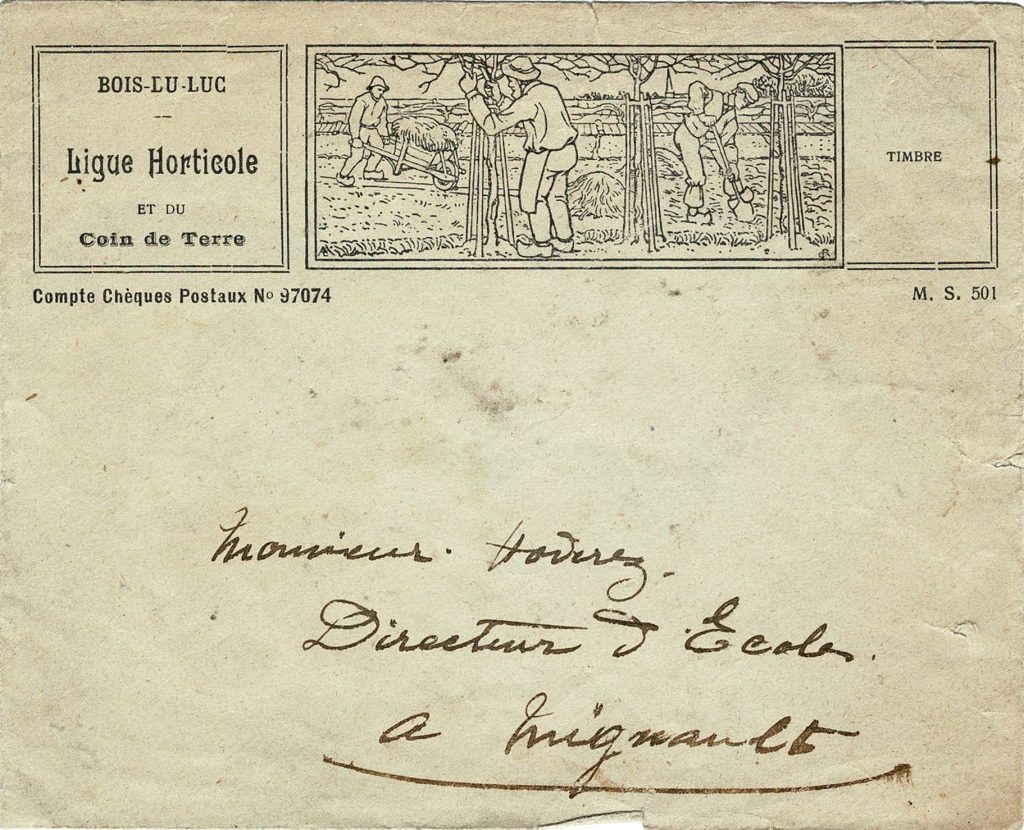 BOIS-DU-LUC
Ligue Horticole
ET DU
Coin de Terre
TIMBRE
Compte Chèques Postaux No 97074
M. S. 501
Monsieur
Directeur d'Ecole
a Mignault